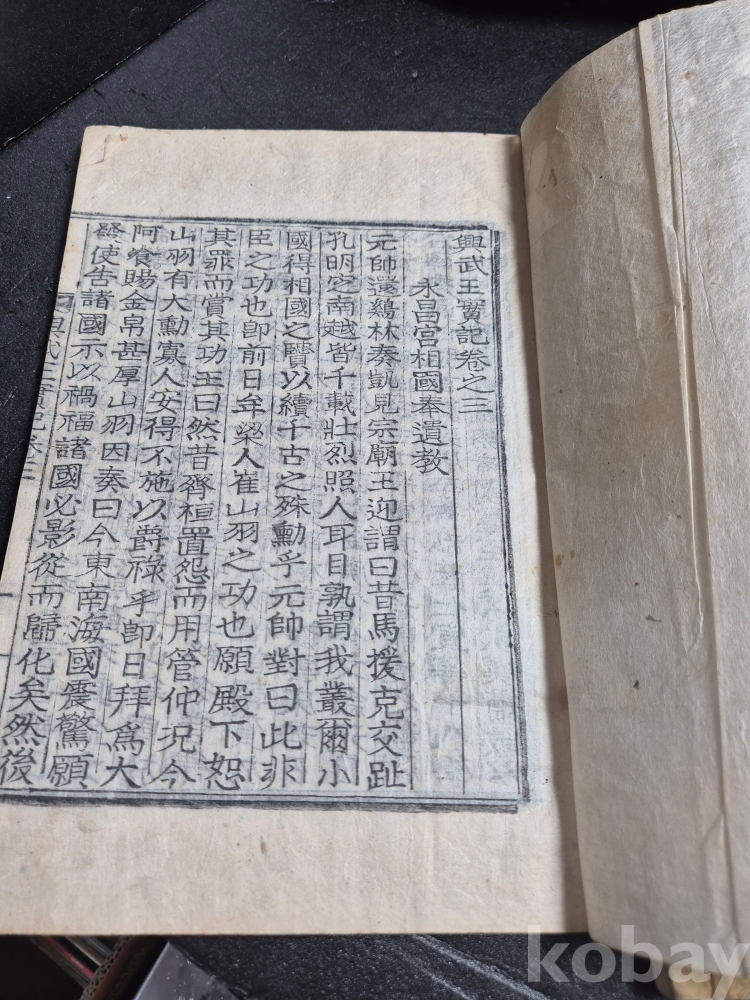 興武王實記卷之三
永昌宮相國奉遺教
元帥還鷄林奏凱見宗廟王迎謂曰昔馬援克交趾
孔明定南越皆千載壯烈照人耳目孰謂我叢爾小
國得相國之賢以續千古之殊勳乎元帥對曰此非
臣之功也卽前日牟梁人崔山羽之功也願殿下恕
其罪而賞其功王曰然昔齊桓置怨而用管仲况今
山羽有大勳寡人安得不施以爵祿乎卽日拜爲大
阿飡賜金帛甚厚山羽因奏曰今東南海國震驚願
發使告諸國示以禍福諸國必影從而歸化矣然後
興武王實記卷三
kobay